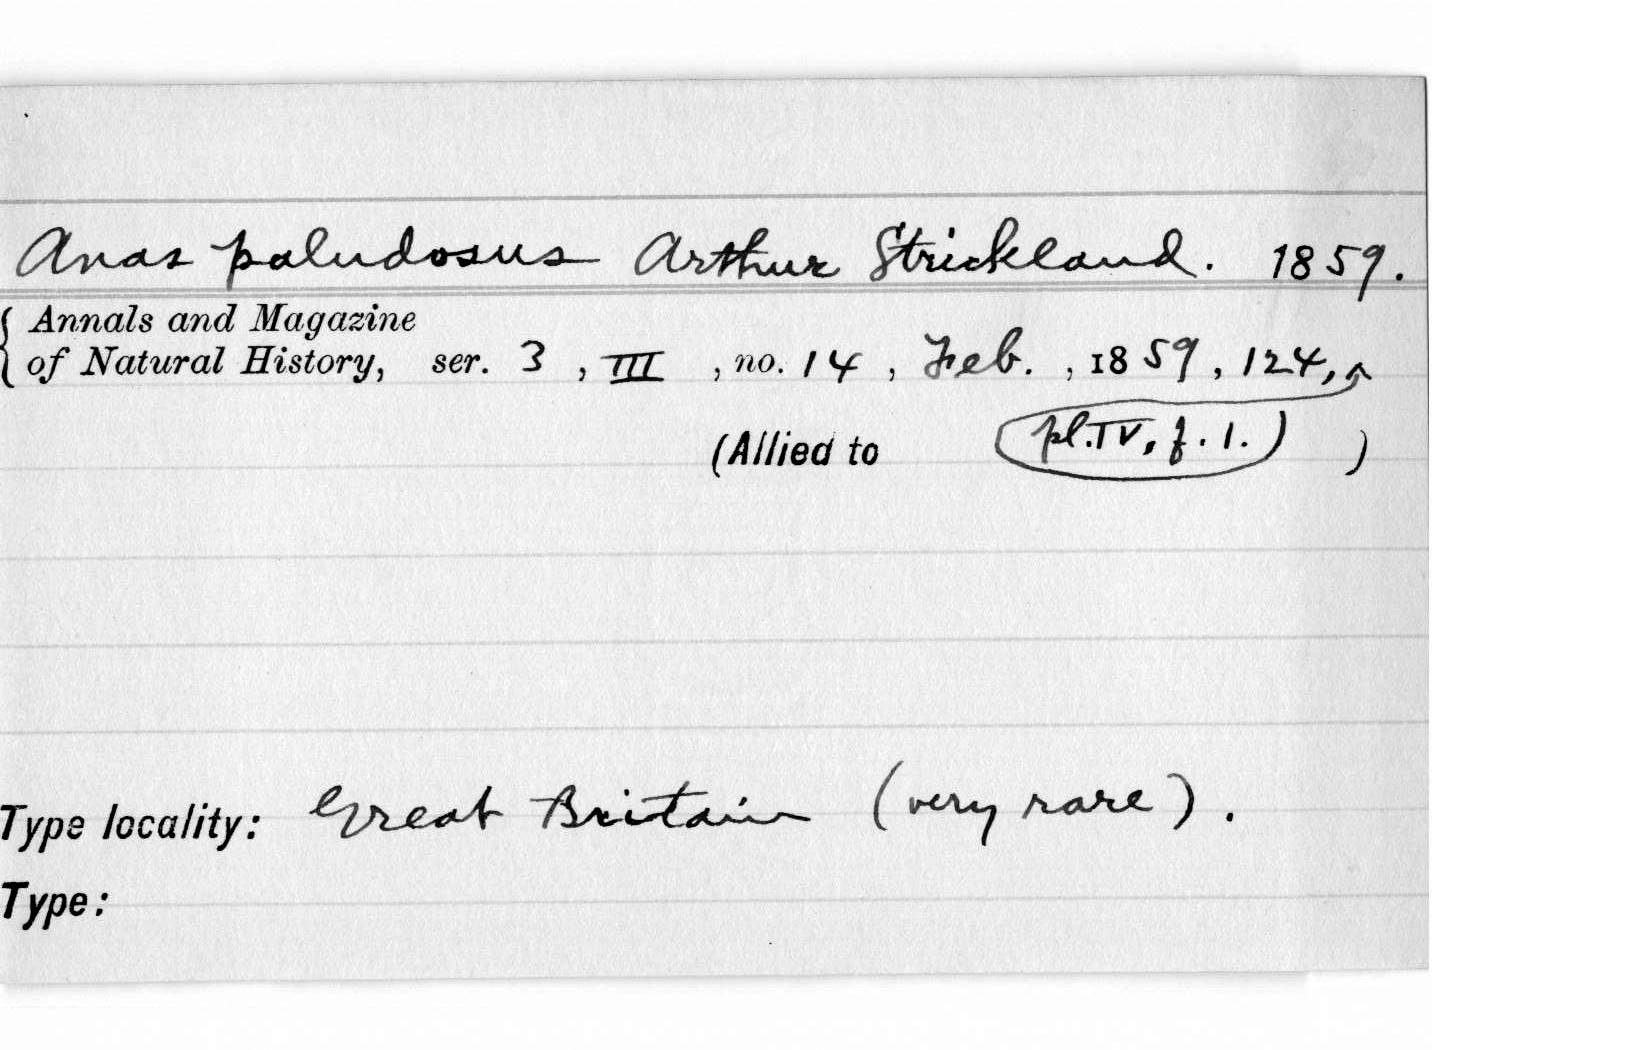 Anas paludosus Arthur Strickland. 1859.
{ Annals and Magazine
of Natural History, ser. 3 , III , no. 14 , Feb. , 1859 , 124,
(Allied to pl. IV, f. 1.) )
Type locality: Great Britain (very rare) .
Type: